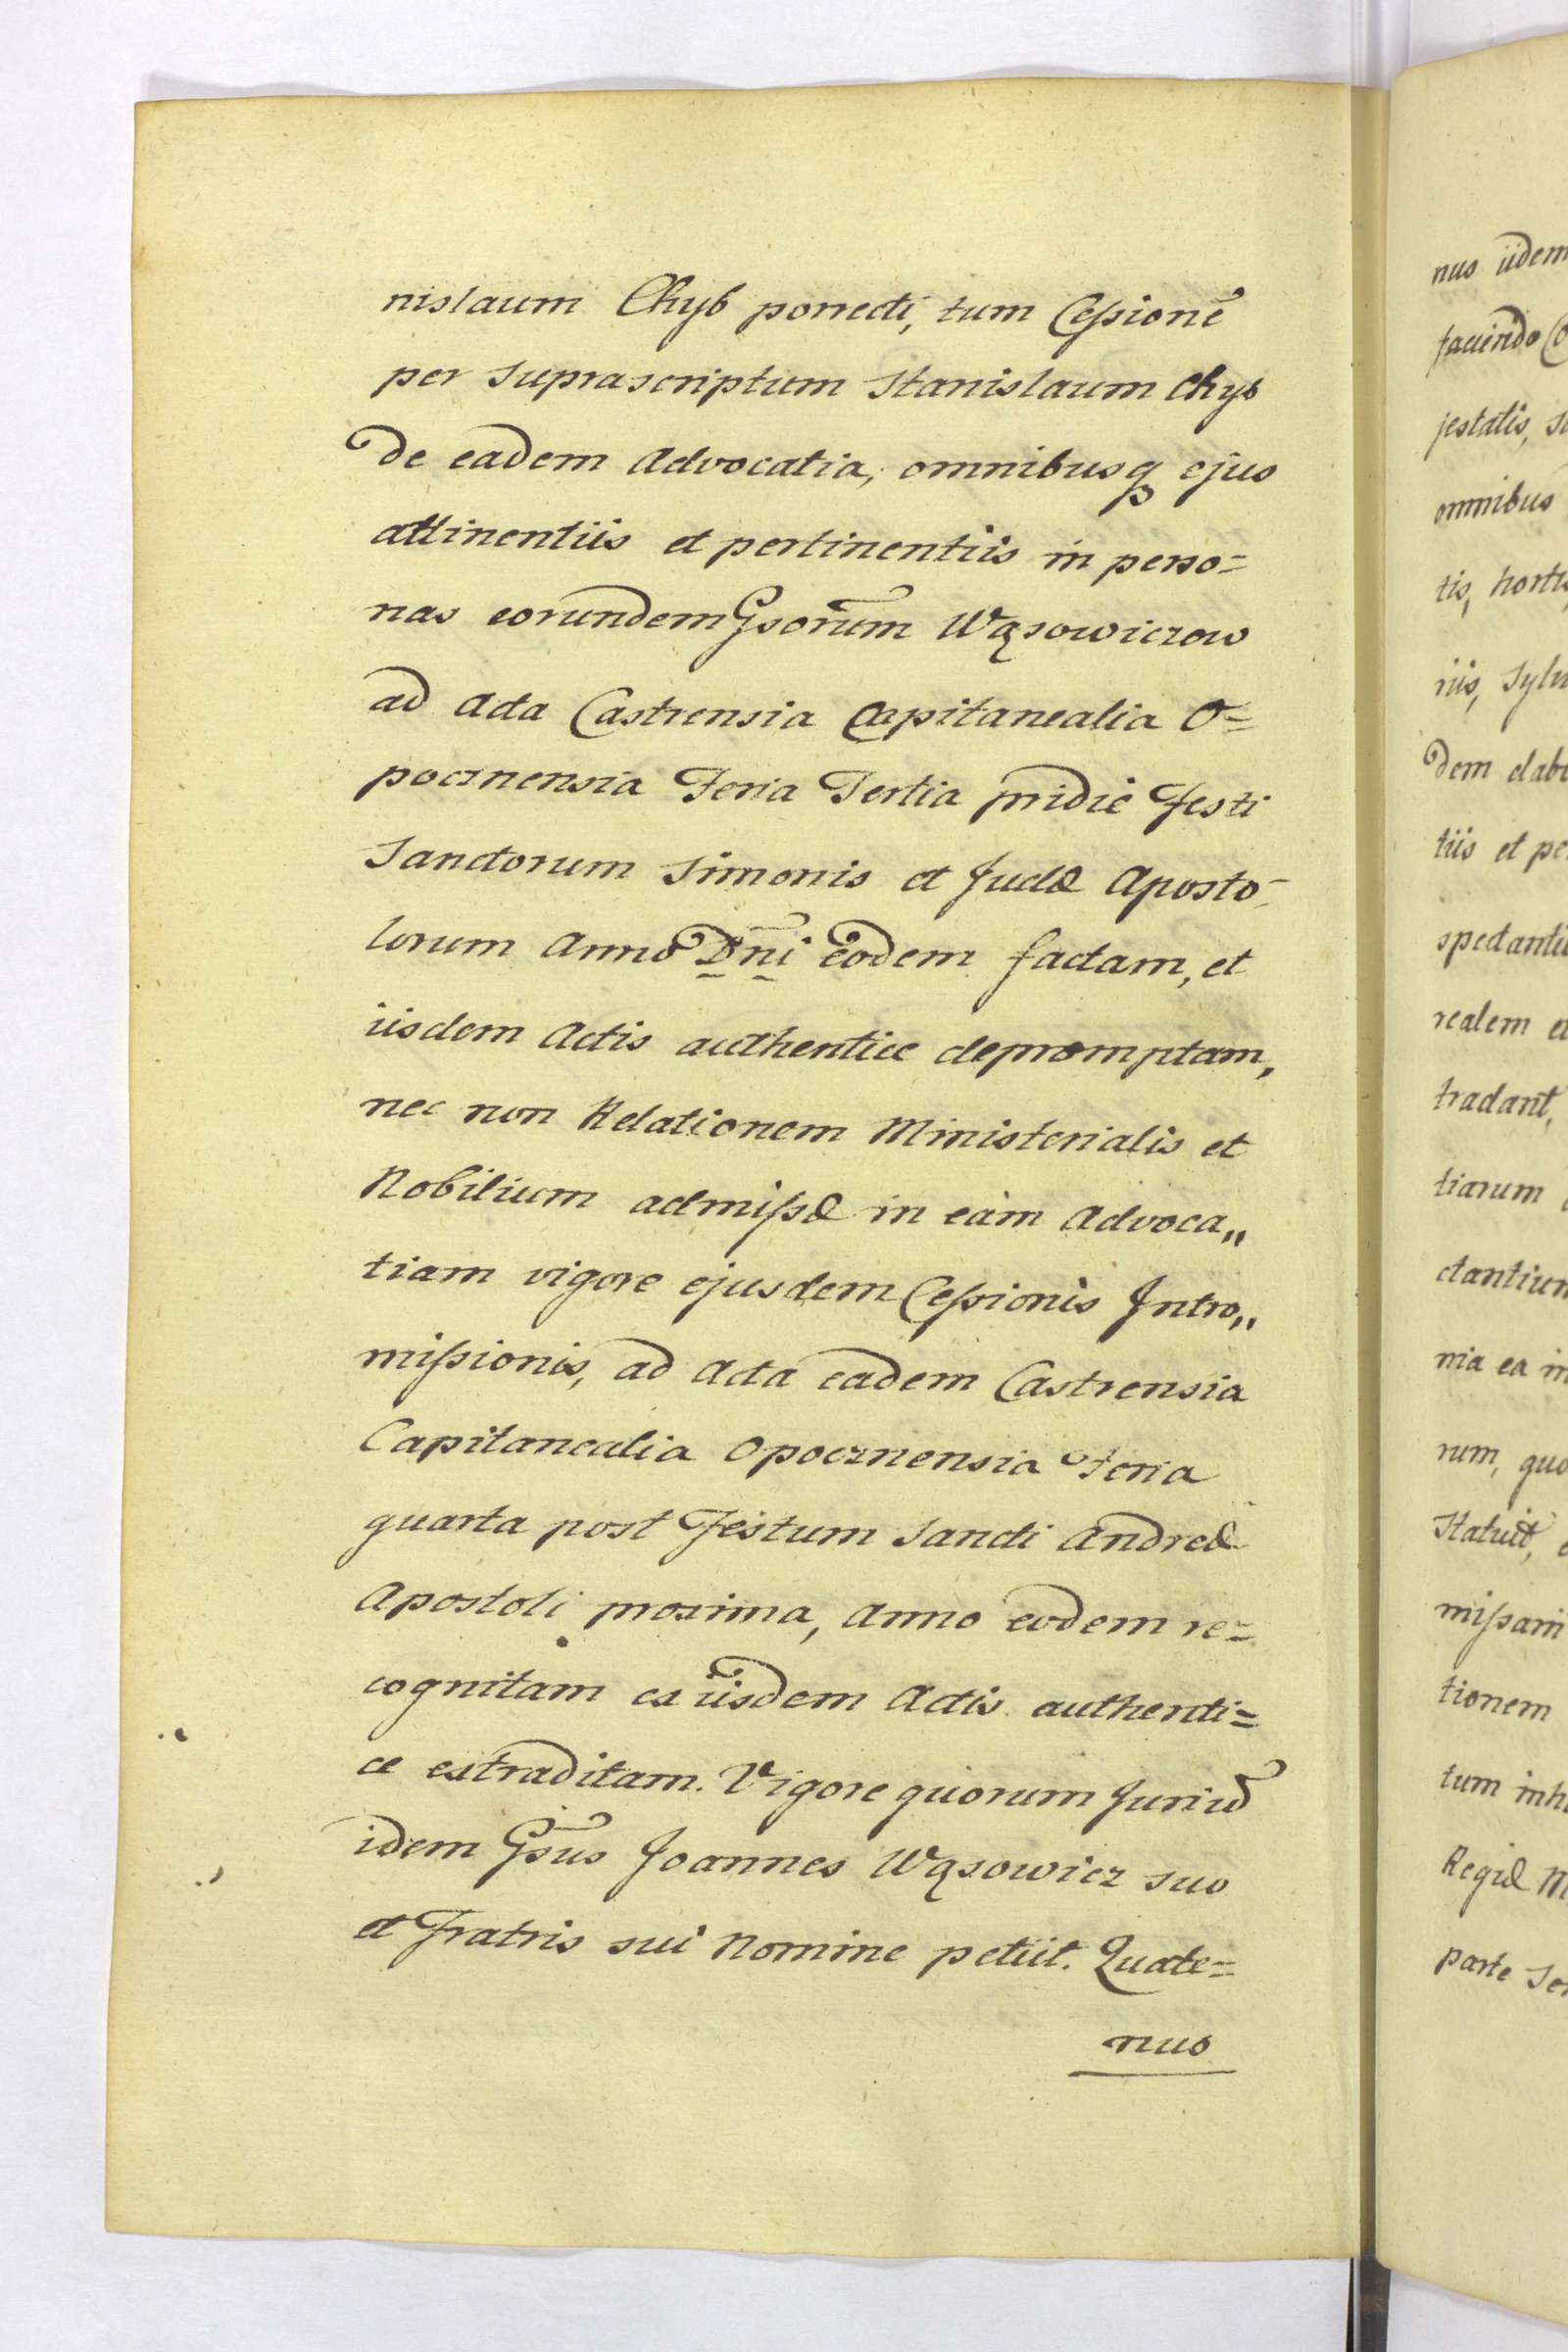 nislaum Chyb porrecti, tum Cessionē
per suprascriptum Stanislaum Chyb
de eadem Advocatia, omnibusq₃ ejus
attinentiis et pertinentiis in perso=
nas eorundem Gsorum Wąsowiczow
ad Acta Castrensia Capitanealia O=
pocznensia Feria Tertia pridie Festi
Sanctorum Simonis et Judæ Aposto=
lorum Anno Dñi eodem factam, et
iisdem Actis authentice depromptam,
nec non Relationem Ministerialis et
Nobilium admissæ in eam Advoca„
tiam vigore ejusdem Cessionis Intro„
missionis, ad Acta eadem Castrensia
Capitanealia Opocznensia Feria
quarta post Festum Sancti Andreæ
Apostoli proxima, Anno eodem re=
cognitam ex iisdem Actis authenti=
ce extraditam. Vigore quorum Juriū
idem Gsus Joannes Wąsowicz suo
et Fratris sui Nomine petiit. Quate=
nus
nus iidem
faciendo
jestatis,
omnibus
tis, hortis
riis, Sylv
dem elab
tiis et pe
spectantii
realem e
tradant,
tiarum
ctantium
nia ea in
rum, quo
Statuit,
missarii
tionem
tum inh
Regiæ M
parte Se